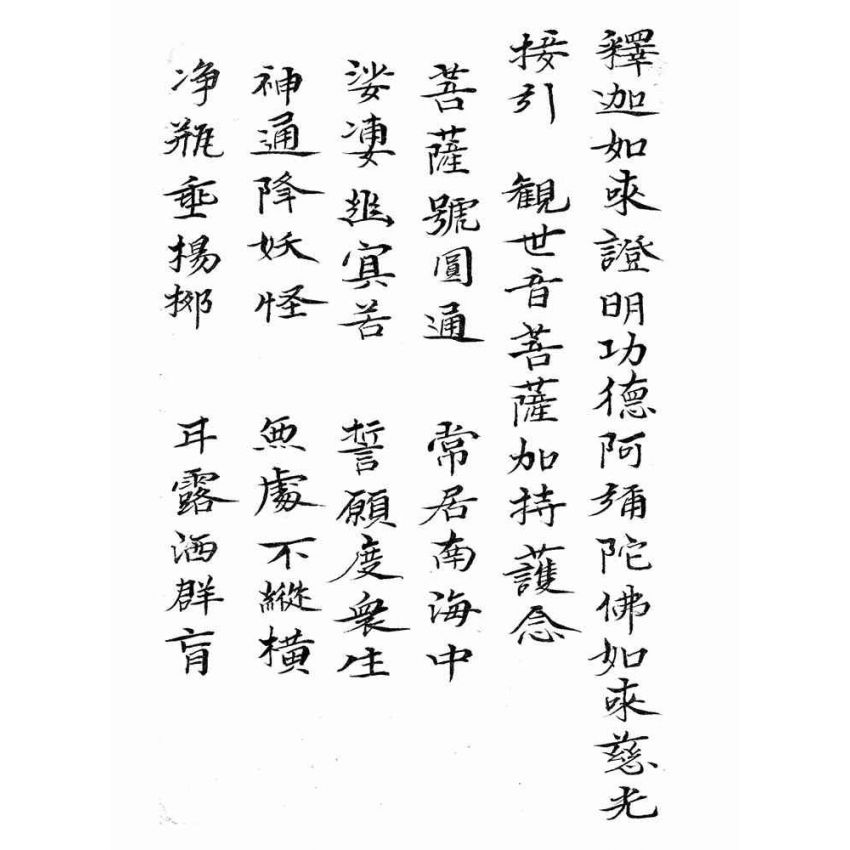 釋迦如來證明功德阿彌陀佛如來慈光
接引 観世音菩薩加持護念
菩薩號圓通 常居南海中
娑凄趂寅苦 誓願度衆生
神通降妖怪 無處不縱橫
净瓶垂揚揤 耳露洒群肓